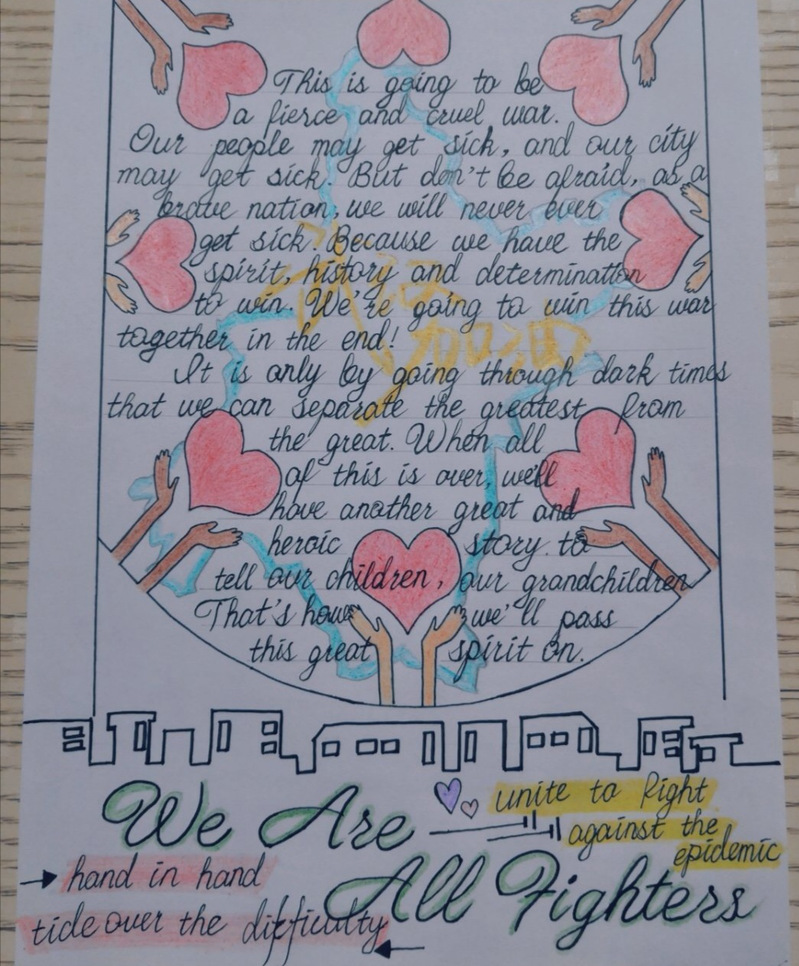 This is going to be
a fierce and cruel war.
Our people may get sick, and our city
may get sick. But don't be afraid, as a
brave nation, we will never ever
get sick. Because we have the
spirit, history and determination
to win. We're going to win this war
together in the end!
It is only by going through dark times
that we can separate the greatest from
the great. When all
of this is over, we'll
have another great and
heroic story to
tell our children, our grandchildren
That's how we'll pass
this great spirit on.
武汉
加油
We Are
unite to fight
against the
epidemic
hand in hand
All Fighters
tide over the difficulty